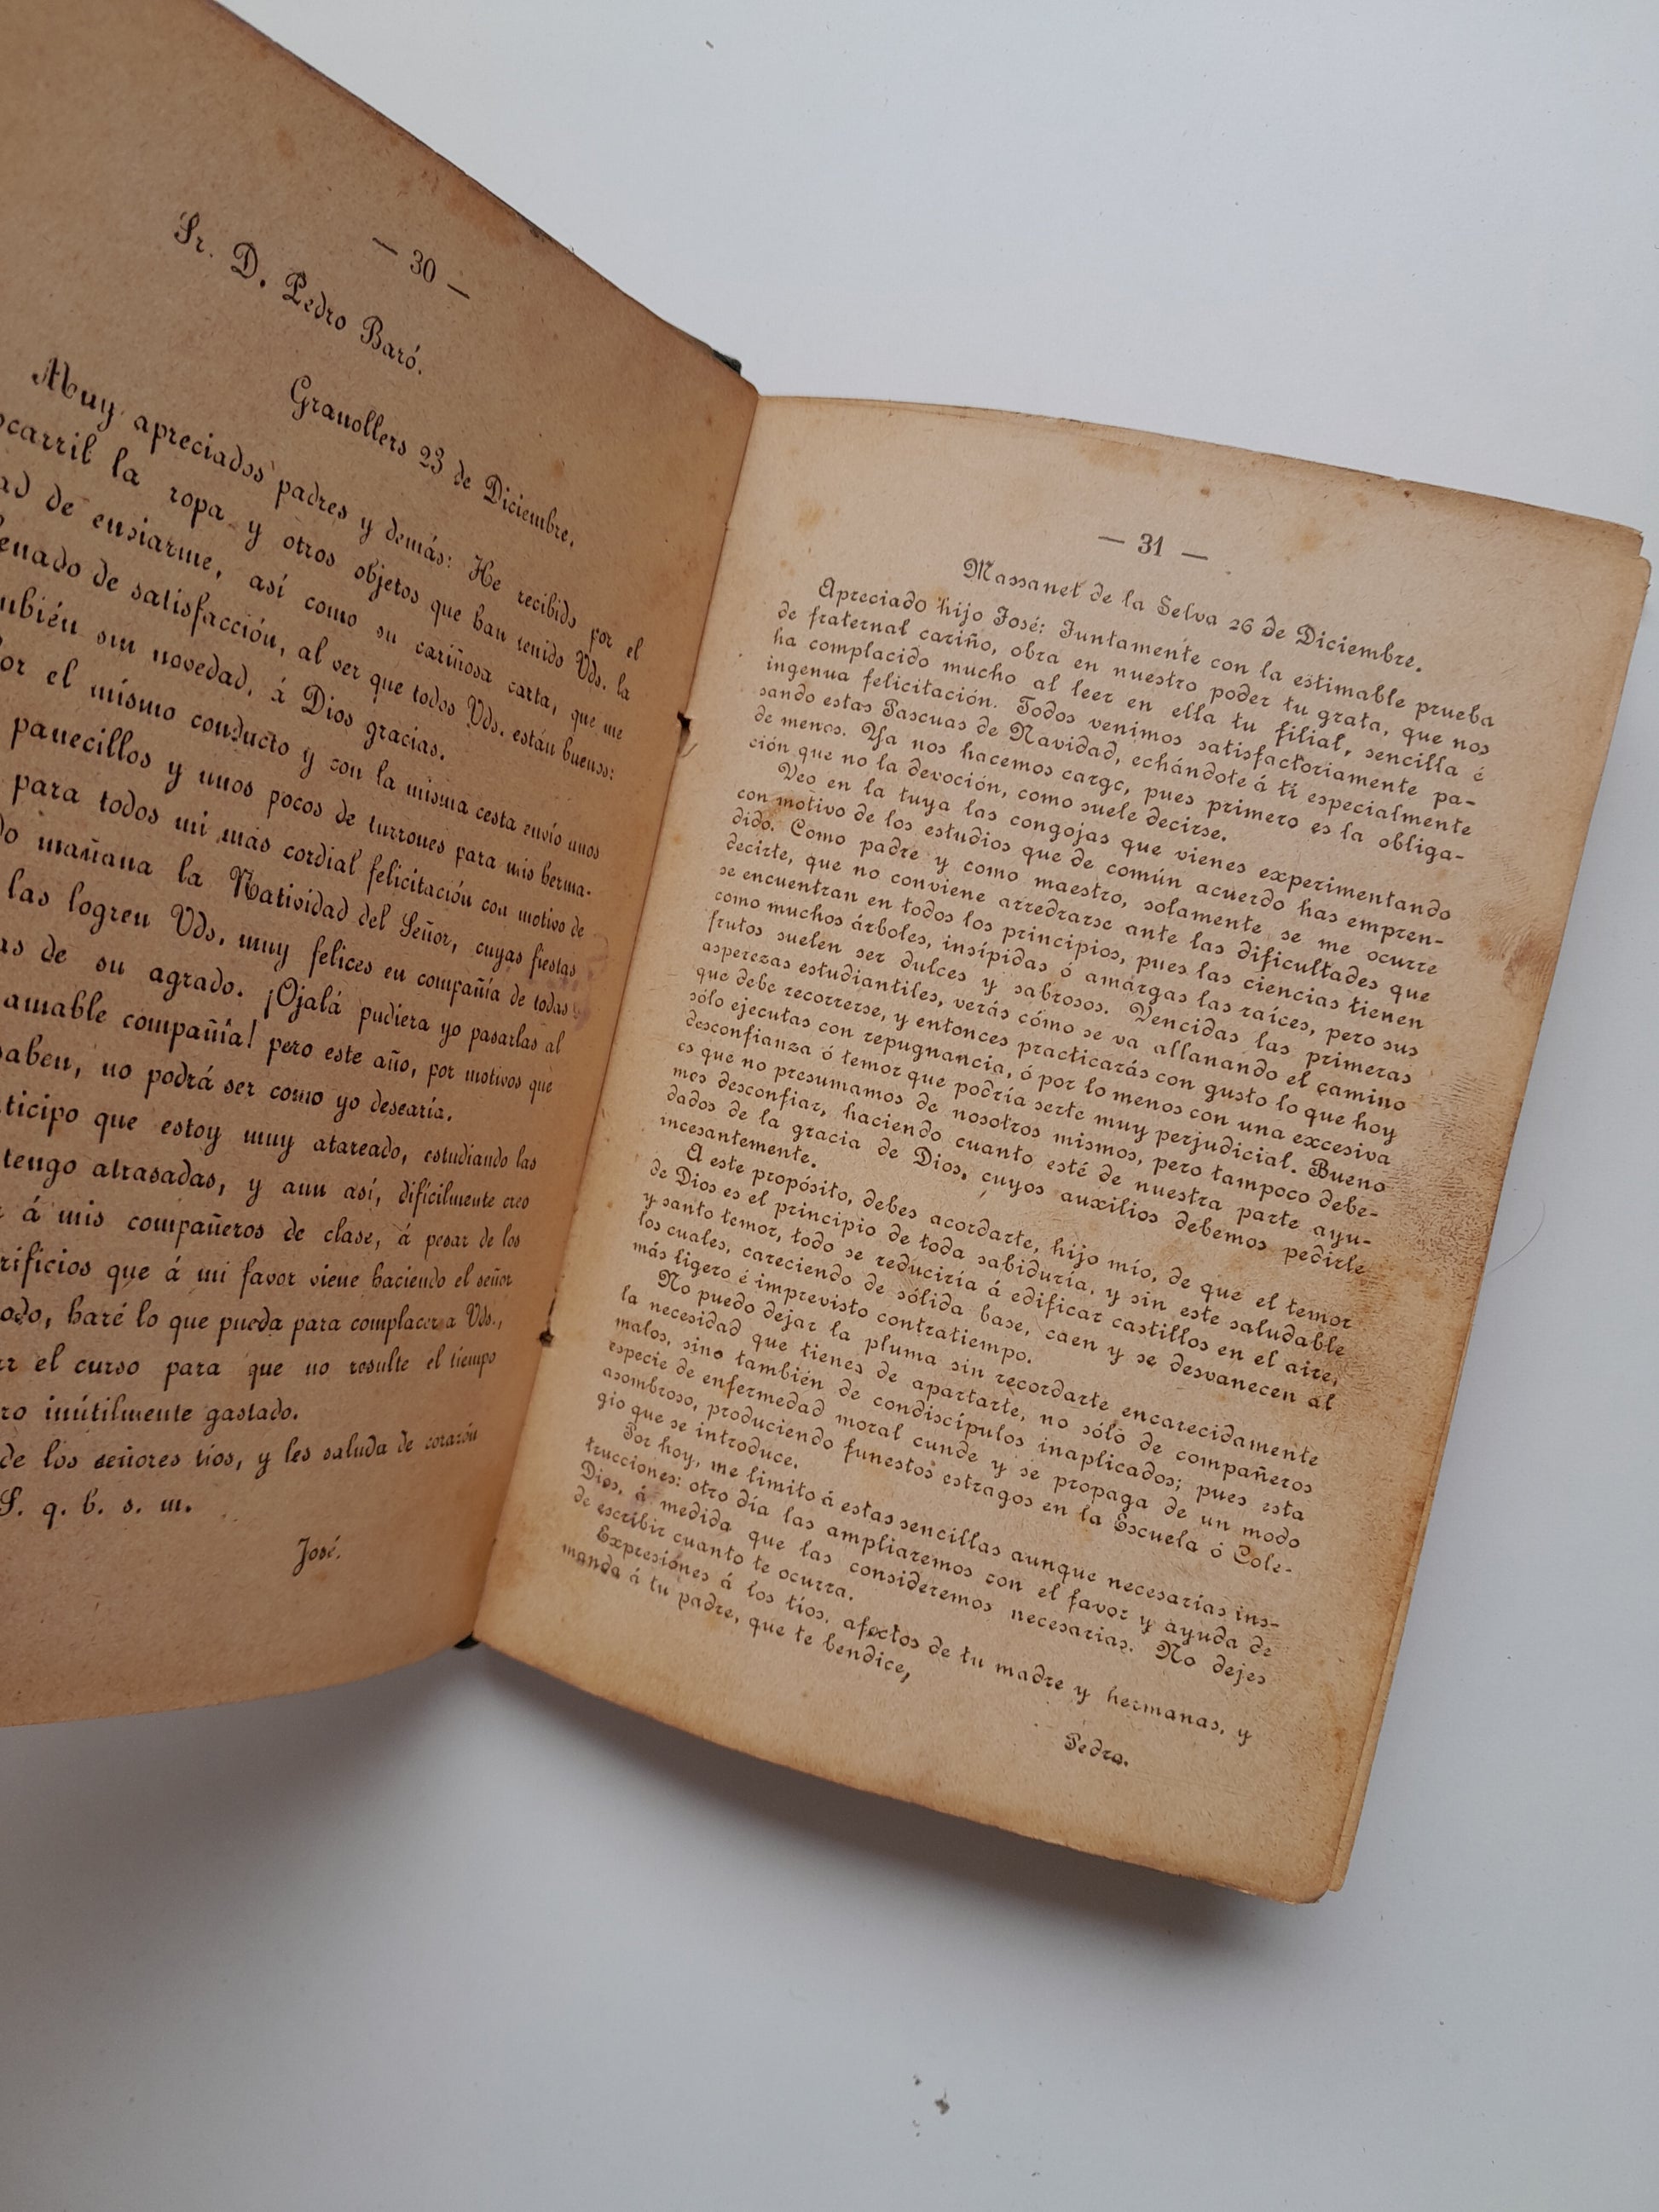 — 30 —
Sr. D. Pedro Baró.
Granollers 23 de Diciembre.
Muy apreciados padres y demás: He recibido por el
ocarril la ropa y otros objetos que han tenido Vds. la
ad de enviarme, así como su cariñosa carta, que me
enado de satisfacción, al ver que todos Vds. están buenos:
mbién sin novedad, á Dios gracias.
or el mismo conducto y con la misma cesta envío unos
panecillos y unos pocos de turrones para mis herma-
para todos mi más cordial felicitación con motivo de
do mañana la Natividad del Señor, cuyas fiestas
las logren Vds. muy felices en compañía de todas
as de su agrado. ¡Ojalá pudiera yo pasarlas al
amable compañía! pero este año, por motivos que
saben, no podrá ser como yo desearía.
ticipo que estoy muy atareado, estudiando las
tengo atrasadas, y aun así, difícilmente creo
r á mis compañeros de clase, á pesar de los
rificios que á mi favor viene haciendo el señor
odo, haré lo que pueda para complacer a Vds.,
ar el curso para que no resulte el tiempo
ro inútilmente gastado.
de los señores tíos, y les saluda de corazón
S. q. b. s. m.
José.
— 31 —
Massanet de la Selva 26 de Diciembre.
Apreciado hijo José: Juntamente con la estimable prueba
de fraternal cariño, obra en nuestro poder tu grata, que nos
ha complacido mucho al leer en ella tu filial, sencilla é
ingenua felicitación. Todos venimos satisfactoriamente pa-
sando estas Pascuas de Navidad, echándote á tí especialmente
de menos. Ya nos hacemos cargo, pues primero es la obliga-
ción que no la devoción, como suele decirse.
Veo en la tuya las congojas que vienes experimentando
con motivo de los estudios que de común acuerdo has empren-
dido. Como padre y como maestro, solamente se me ocurre
decirte, que no conviene arredrarse ante las dificultades que
se encuentran en todos los principios, pues las ciencias tienen
como muchos árboles, insípidas ó amargas las raíces, pero sus
frutos suelen ser dulces y sabrosos. Vencidas las primeras
asperezas estudiantiles, verás cómo se va allanando el camino
que debe recorrerse, y entonces practicarás con gusto lo que hoy
sólo ejecutas con repugnancia, ó por lo menos con una excesiva
desconfianza ó temor que podría serte muy perjudicial. Bueno
es que no presumamos de nosotros mismos, pero tampoco debe-
mos desconfiar, haciendo cuanto esté de nuestra parte ayu-
dados de la gracia de Dios, cuyos auxilios debemos pedirle
incesantemente.
A este propósito, debes acordarte, hijo mío, de que el temor
de Dios es el principio de toda sabiduría, y sin este saludable
y santo temor, todo se reduciría á edificar castillos en el aire,
los cuales, careciendo de sólida base, caen y se desvanecen al
más ligero é imprevisto contratiempo.
No puedo dejar la pluma sin recordarte encarecidamente
la necesidad que tienes de apartarte, no sólo de compañeros
malos, sino también de condiscípulos inaplicados; pues esta
especie de enfermedad moral cunde y se propaga de un modo
asombroso, produciendo funestos estragos en la Escuela ó Cole-
gio que se introduce.
Por hoy, me limito á estas sencillas aunque necesarias ins-
trucciones: otro día las ampliaremos con el favor y ayuda de
Dios, á medida que las consideremos necesarias. No dejes
de escribir cuanto te ocurra.
Expresiones á los tíos, afectos de tu madre y hermanas, y
manda á tu padre, que te bendice,
Pedro.